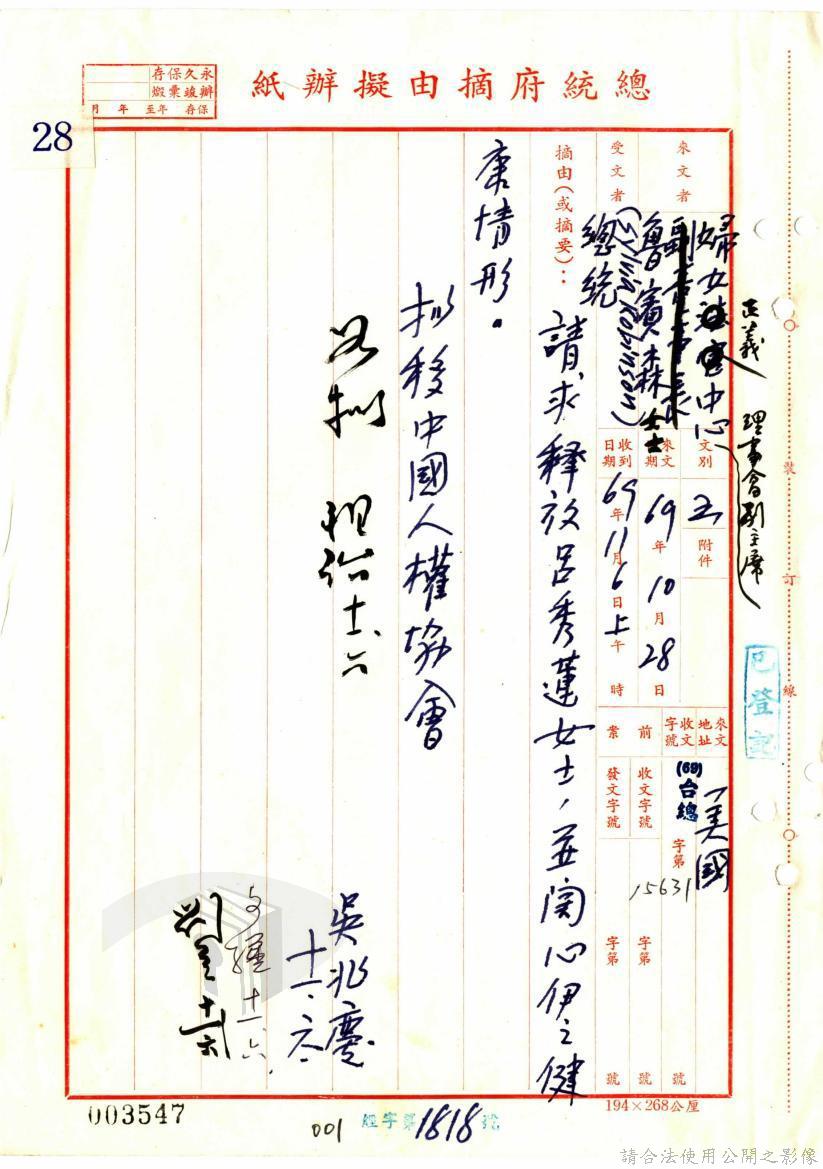 總統府摘由擬辦紙
永久保存
辦竣彙燬
保存 年至 年 月
28
來文者
婦女法律中心
正義
理事會副主席
魯賓森女士
(Sylvia Robinson)
受文者
總統
文別
附件
來文日期
69年10月28日
收到日期
69年11月6日上午 時
來文地址
美國
收文字號
(69)台總 字第 15631 號
前案
收文字號 字第 號
發文字號 字第 號
摘由(或摘要):
請求釋放呂秀蓮女士,並關心伊之健
康情形。
擬移中國人權協會
吳兆慶
十一、六
如擬
十一、六
十一、六
裝訂線
已登記
194×268公厘
003547
001
字第1818號
請合法使用公開之影像